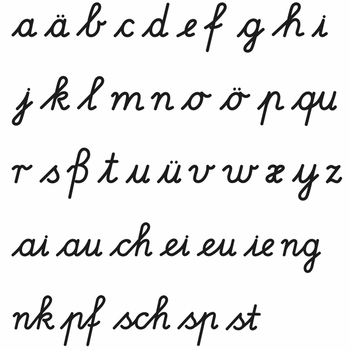 a ä b c d e f g h i
j k l m n o ö p qu
r s ß t u ü v w x y z
ai au ch ei eu ie ng
nk pf sch sp st